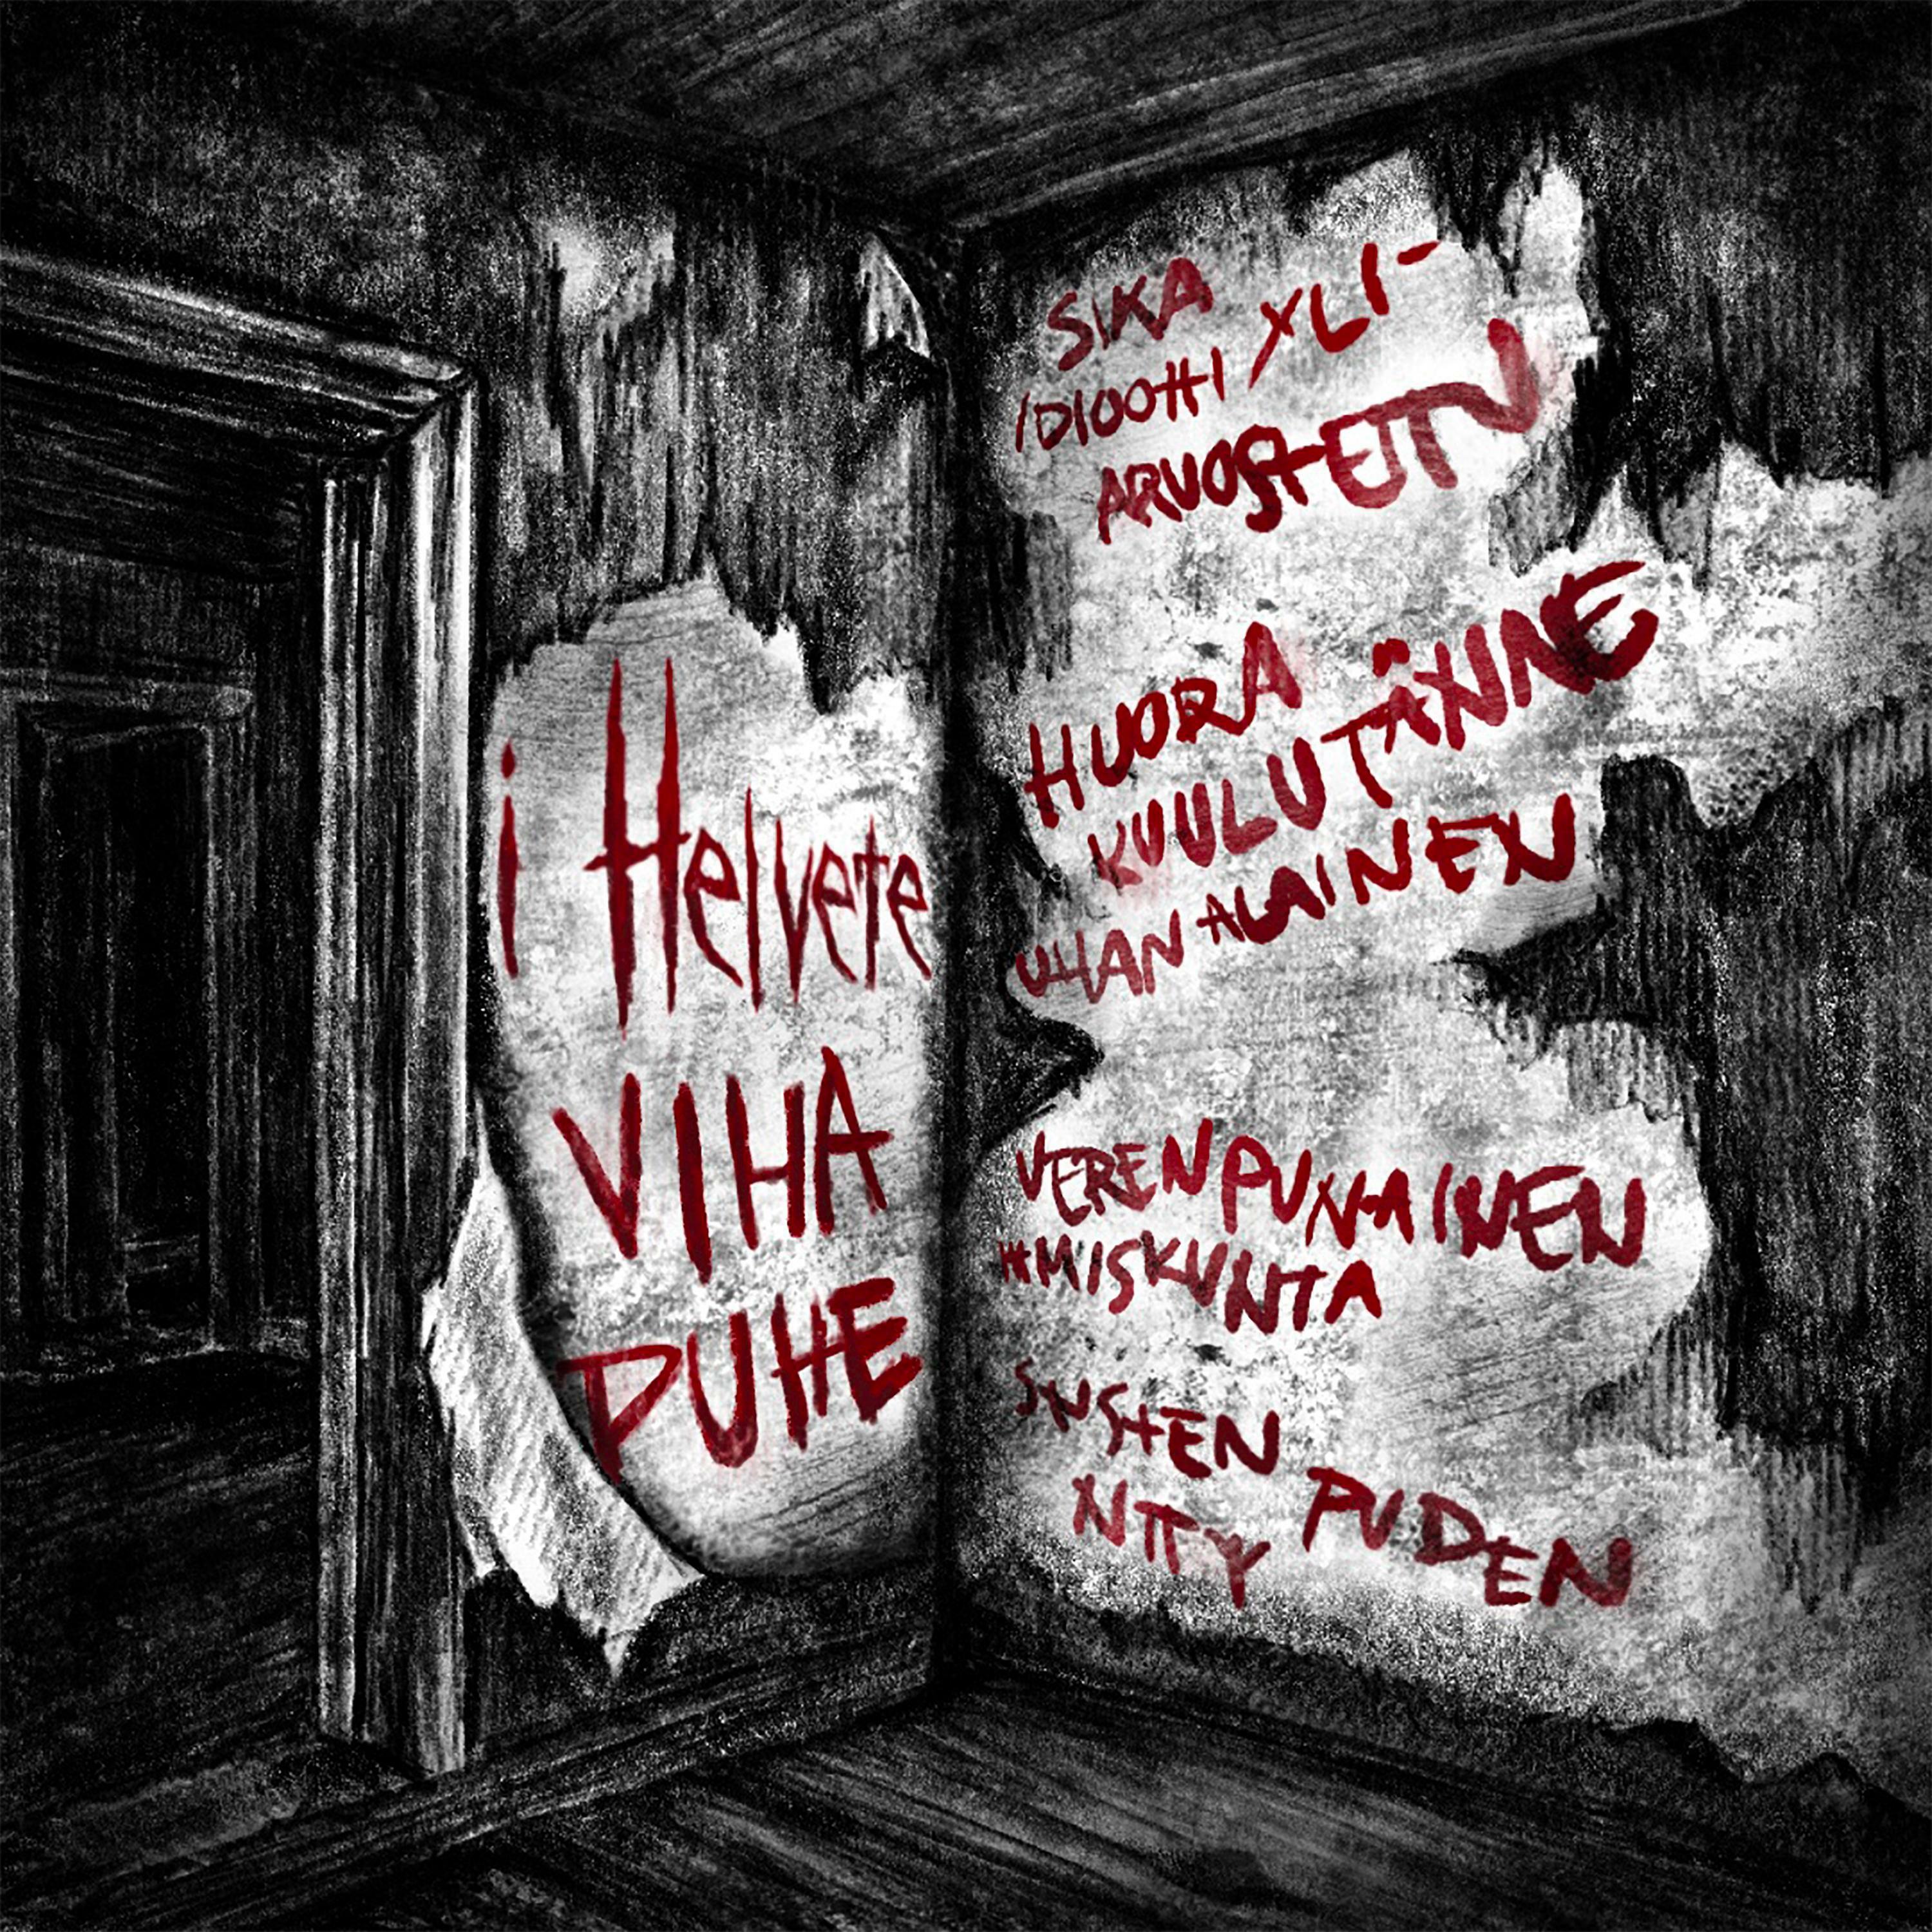 i Helvete
VIHA
PUHE
SIKA
IDIOOTTI YLI-
ARVOSTETTU
HUORA
KUULU TÄNNE
UHAN ALAINEN
VERENPUNAINEN
IHMISKUNTA
SYSTEN
NTTY PUDEN